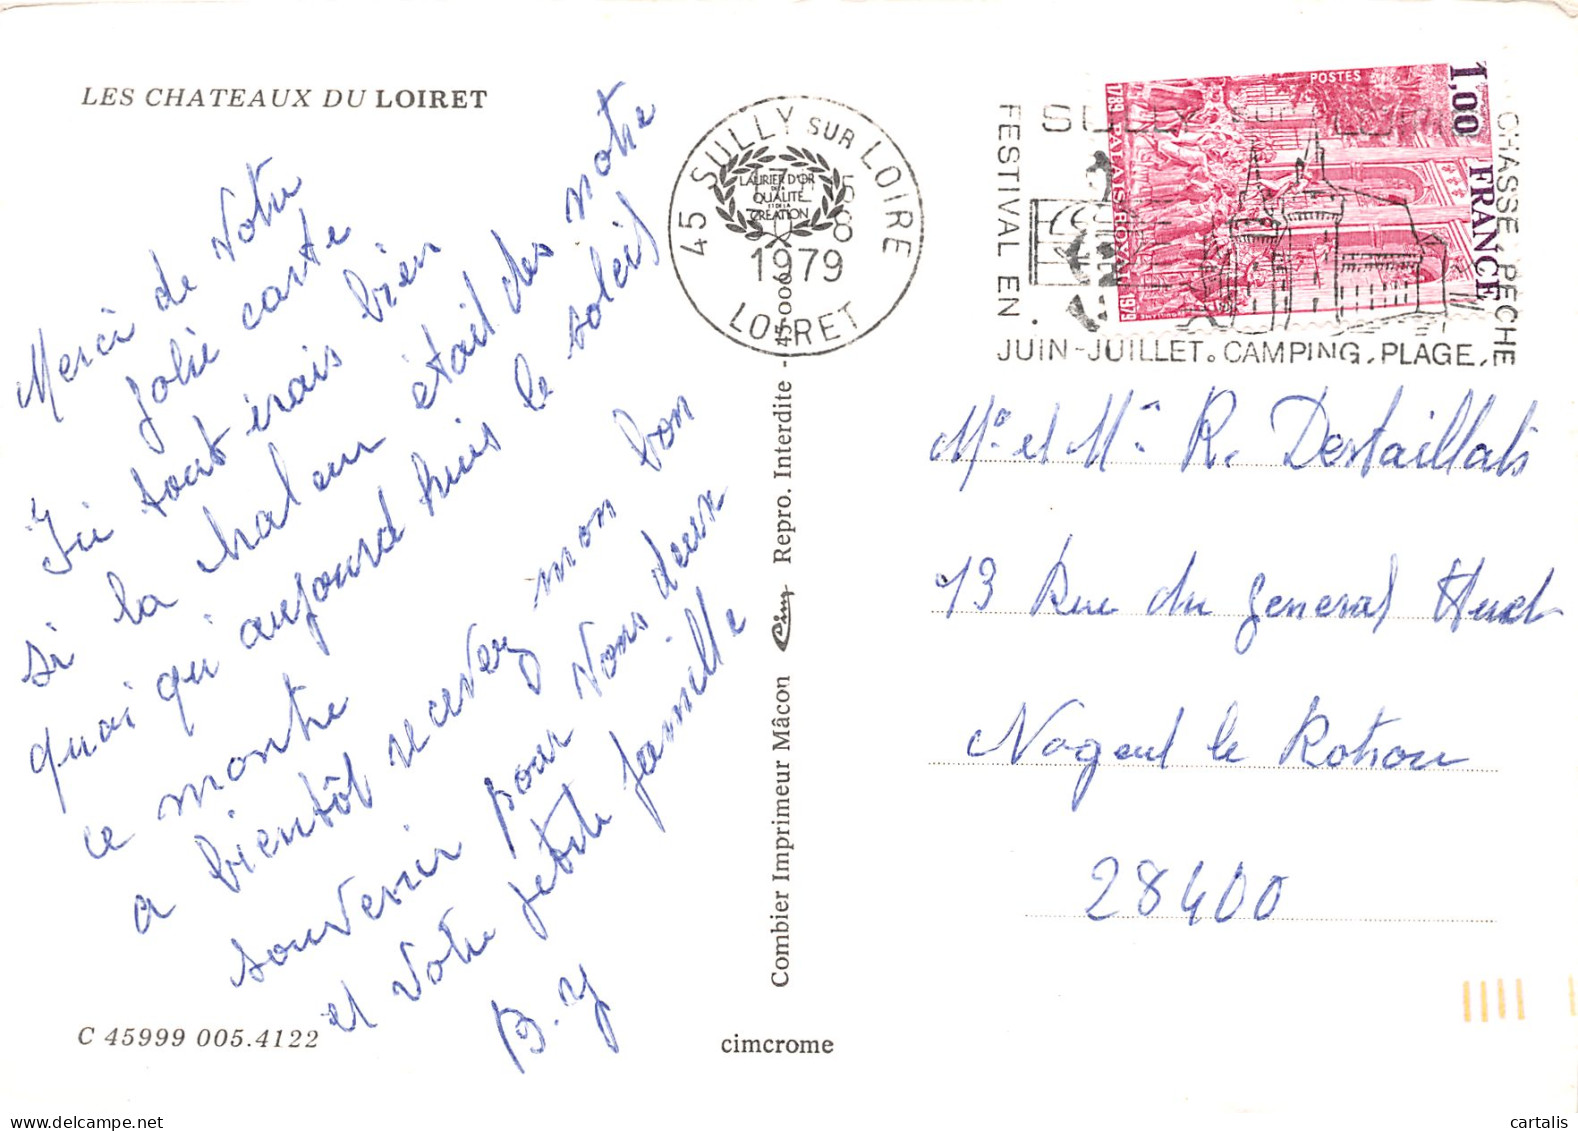 LES CHATEAUX DU LOIRET
Merci de votre
jolie carte
Ici tout irais bien
si la chaleur était des notre
quoi qu'aujourd huis le soleil
ce montre
a bientôt recevez mon bon
souvenir pour vous deux
et votre petite famille
B. Y
C 45999 005.4122
cimcrome
Combier Imprimeur Mâcon Cim Repro. Interdite - 45-000
LAURIER D'OR
DE LA
QUALITÉ
ET DE LA
CREATION
45 SULLY SUR LOIRE
1979
LOIRET
SULLY SUR LOIRE
FESTIVAL EN
JUIN-JUILLET. CAMPING. PLAGE.
CHASSE PECHE
POSTES
1,00
FRANCE
1789 PALAIS ROYAL 1979
Mr et Me R. Destaillats
13 Rue du general Huet
Nogent le Rotrou
28400
cartalis